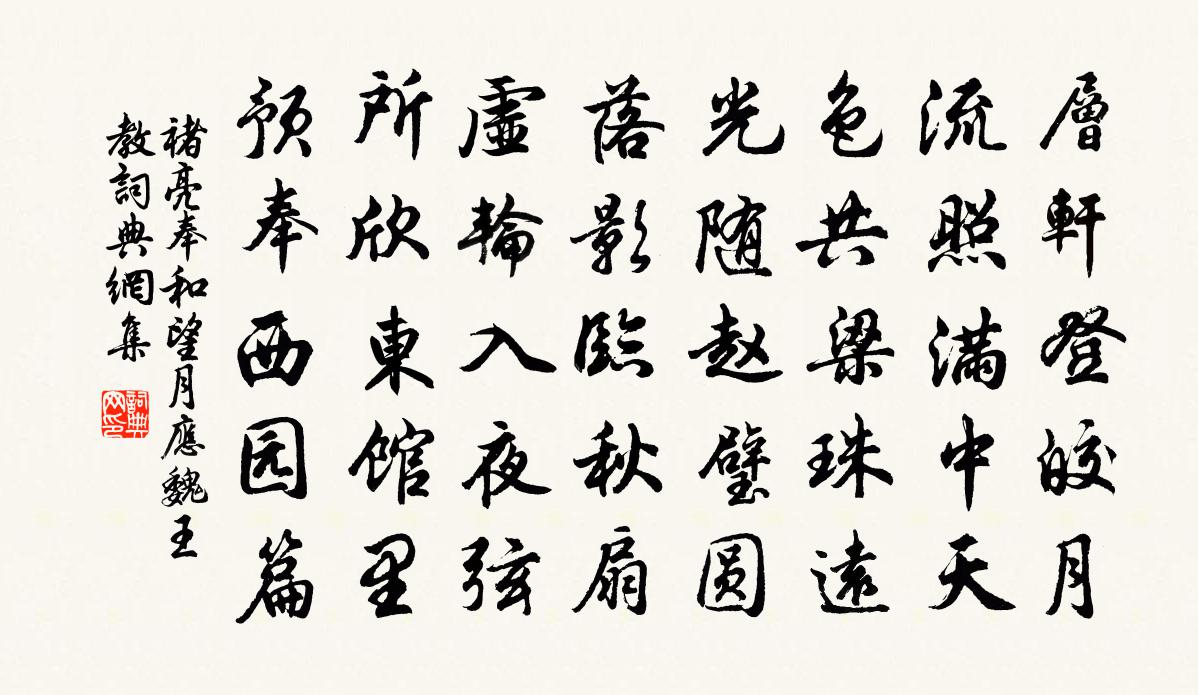 層軒登皎月
流照滿中天
色共梁珠遠
光随赵璧圆
落影臨秋扇
虛輪入夜弦
所欣東館里
预奉西园篇
褚亮奉和望月應魏王
教詞典網集
詞典网印